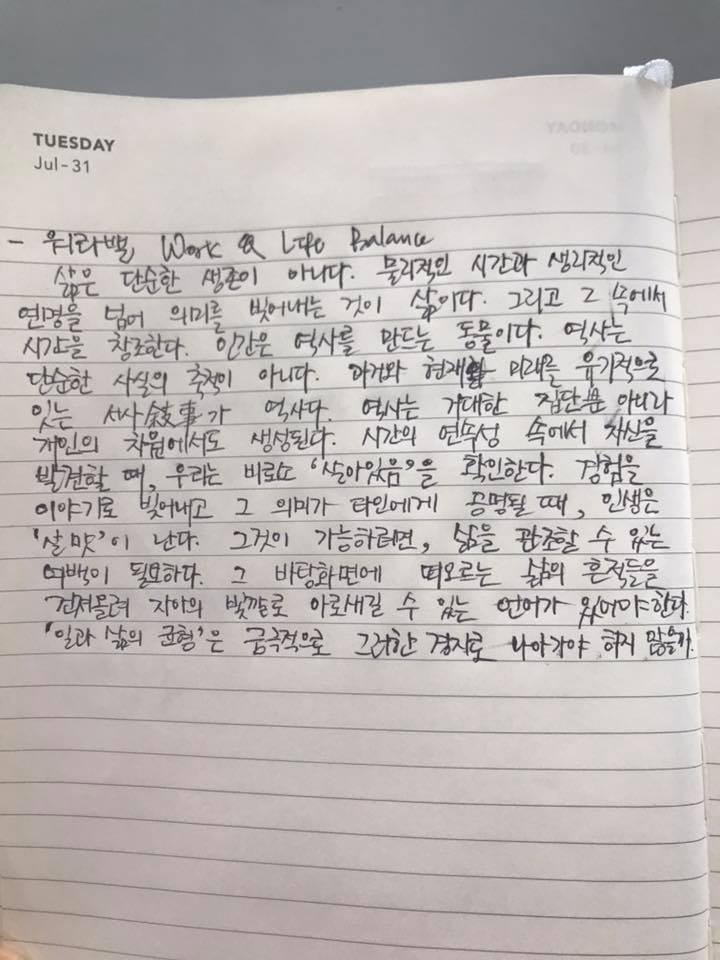 TUESDAY
Jul-31
- 워라밸, Work & Life Balance
삶은 단순한 생존이 아니다. 물리적인 시간과 생리적인
연명을 넘어 의미를 빚어내는 것이 삶이다. 그리고 그 속에서
시간을 창조한다. 인간은 역사를 만드는 동물이다. 역사는
단순한 사실의 축적이 아니다. 과거와 현재와 미래를 유기적으로
잇는 서사敍事가 역사다. 역사는 거대한 집단뿐 아니라
개인의 차원에서도 생성된다. 시간의 연속성 속에서 자신을
발견할 때, 우리는 비로소 '살아있음'을 확인한다. 경험을
이야기로 빚어내고 그 의미가 타인에게 공명될 때, 인생은
'살맛'이 난다. 그것이 가능하려면, 삶을 관조할 수 있는
여백이 필요하다. 그 바탕화면에 떠오르는 삶의 흔적들을
건져올려 자아의 빛깔로 아로새길 수 있는 언어가 있어야 한다.
'일과 삶의 균형'은 궁극적으로 그러한 경지로 나아가야 하지 않을까.